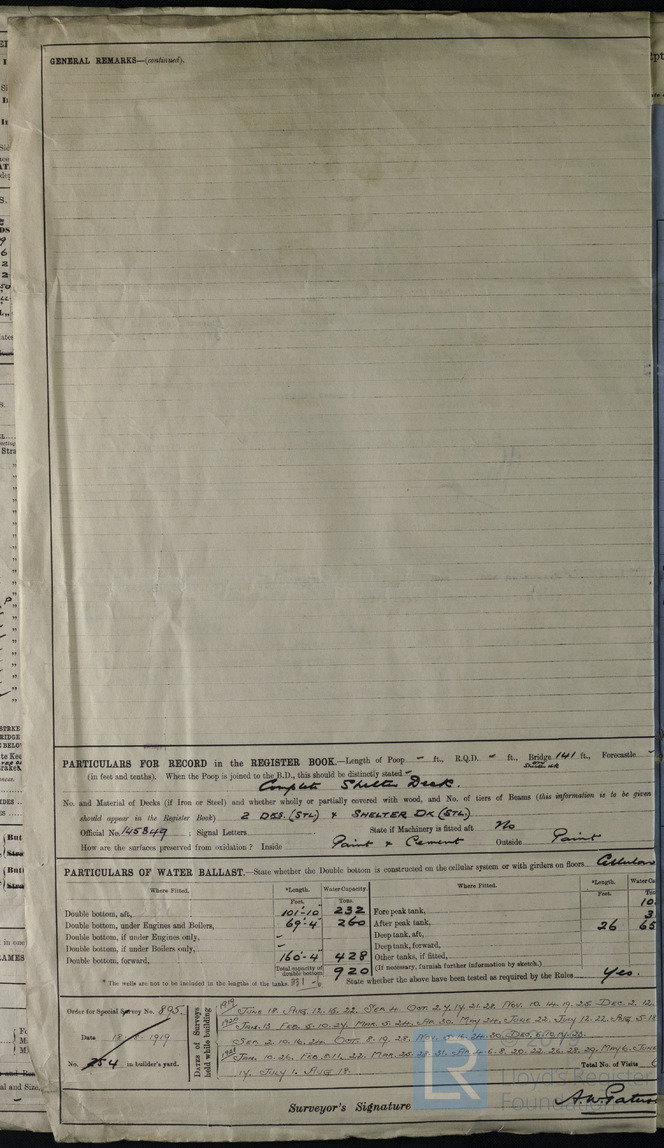 GENERAL REMARKS—(continued).
PARTICULARS FOR RECORD in the REGISTER BOOK.—Length of Poop - ft., R.Q.D. - ft., Bridge 141 ft., Forecastle -
(in feet and tenths). When the Poop is joined to the B.D., this should be distinctly stated.—
Complete Shelter Deck.
No. and Material of Decks (if Iron or Steel) and whether wholly or partially covered with wood, and No. of tiers of Beams (this information is to be given
should appear in the Register Book) 2 DKS. (STL) & SHELTER DK (STL)
Official No. 145849 ; Signal Letters State if Machinery is fitted aft No
How are the surfaces preserved from oxidation? Inside Paint & Cement Outside Paint
PARTICULARS OF WATER BALLAST.—State whether the Double bottom is constructed on the cellular system or with girders on floors Cellular
Where Fitted. *Length. Water Capacity. Where Fitted. *Length. Water Ca
Feet. Tons. Feet. Tons
Double bottom, aft, 101-10 232 Fore peak tank,
Double bottom, under Engines and Boilers, 69-4 260 After peak tank, 26 65
Double bottom, if under Engines only, - Deep tank, aft,
Double bottom, if under Boilers only, - Deep tank, forward,
Double bottom, forward, 160-4 428 Other tanks, if fitted,
Total capacity of double bottom 920 (If necessary, furnish further information by sketch.)
* The wells are not to be included in the lengths of the tanks. 331-6 State whether the above have been tested as required by the Rules Yes.
Order for Special Survey No. 895
Date 1919
No. 754 in builder's yard.
Dates of Surveys held while building
1919 June 18. Aug. 12. 15. 22. Sep 4. Oct. 2. 7. 14. 21. 28. Nov. 10. 14. 19. 25. Dec. 2. 12.
1920 Jan. 13. Feb. 5. 10. 27. Mar. 5. 24. Ap. 30. May 24. June 22. July 12. 22. Aug 5. 18
Sep. 2. 10. 16. 24. Oct. 8. 19. 28. Nov. 5. 16. 24. 30. Dec.
1921 Jan. 10. 26. Feb. 8. 11. 22. Mar. 28. 31. Ap. 4. 6. 8. 20. 22. 26. 28. 29. May 6. June
17. July 1. Aug 18.
Total No. of Visits
Surveyor's Signature A.W. Paterson
LR
© 2020
Lloyd's Register
Foundation